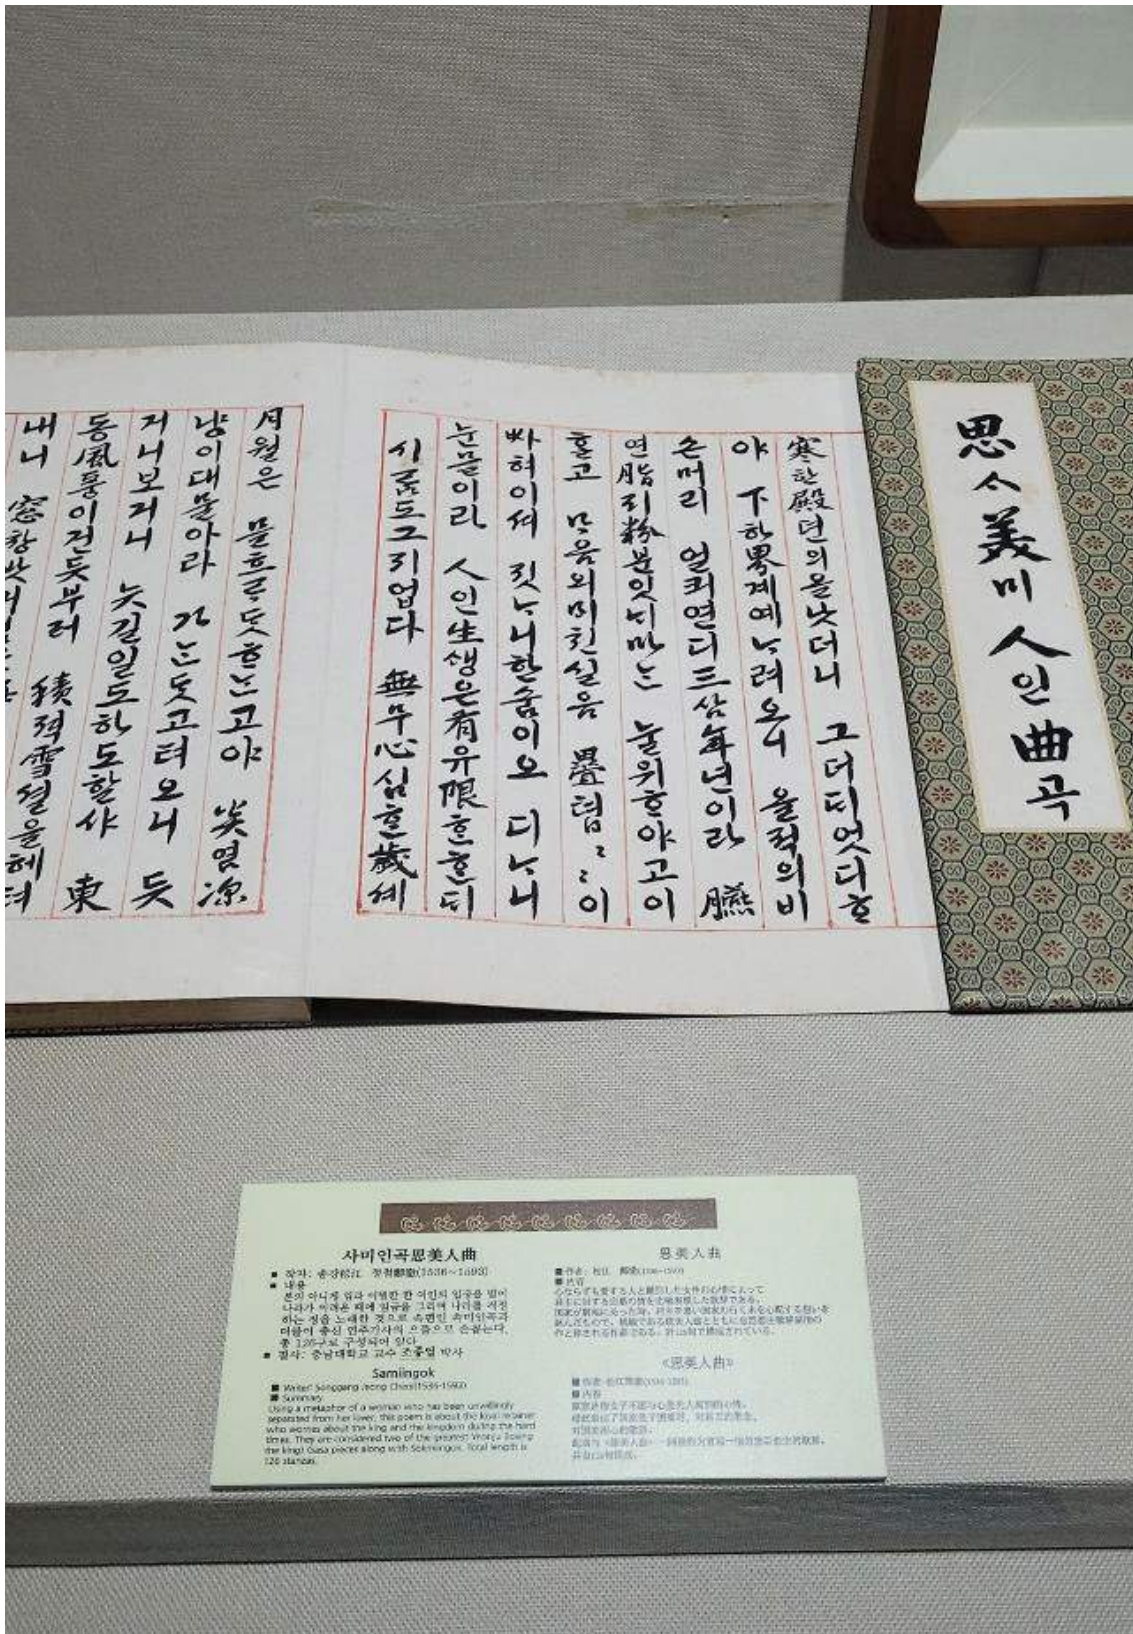 思ᄉᆞ美미人인曲곡
寒한殿뎐의올낫더니 그더ᄃᆡ엇디ᄒᆞ
야 下하界계예ᄂᆞ려오니 올적의비
손머리 얼킈연디三삼年년이라 臙
연脂지粉분잇ᄂᆡ마ᄂᆞᆫ 눌위ᄒᆞ야고이
ᄒᆞᆯ고 ᄆᆞ음의ᄆᆡ친실음 疊텹〻〻이
싸혀이셔 짓ᄂᆞ니한숨이오 디ᄂᆞ니
눈믈이라 人인生생은有유限ᄒᆞᆫᄒᆞᆫᄃᆡ
시ᄅᆞᆷ도그지업다 無무心심ᄒᆞᆫ歲셰
月월은 믈흐ᄅᆞᄃᆞᆺᄒᆞᄂᆞᆫ고야 炎염凉
냥이대믈아라 가ᄂᆞᆫᄃᆞᆺ고텨오니 듯
거니보거니 늣길일도하도할샤 東
동風풍이건듯부러 積적雪셜을헤텨
내니 窓창밧
사미인곡思美人曲
■ 작자: 송강松江 정철鄭澈(1536~1593)
■ 내용
본의 아니게 임과 이별한 한 여인의 입장을 빌어
나라가 어려운 때에 임금을 그리며 나라를 걱정
하는 정을 노래한 것으로 속편인 속미인곡과
더불어 충신 연주가사의 으뜸으로 손꼽는다.
총 126구로 구성되어 있다
■ 필사: 충남대학교 교수 조종업 박사
Samiingok
■ Writer: Songgang Jeong Cheol(1536-1593)
■ Summary
Using a metaphor of a woman who has been unwillingly
separated from her lover, this poem is about the loyal retainer
who worries about the king and the kingdom during the hard
times. They are considered two of the greatest Yeonju (loving
the king) Gasa pieces along with Sokmiingok. Total length is
126 stanzas.
思美人曲
■ 作者: 松江 鄭澈(1536~1593)
■ 内容
心ならずも愛する人と離別した女性の心情によって
《思美人曲》
■ 作者: 松江鄭澈(1536-1593)
■ 内容